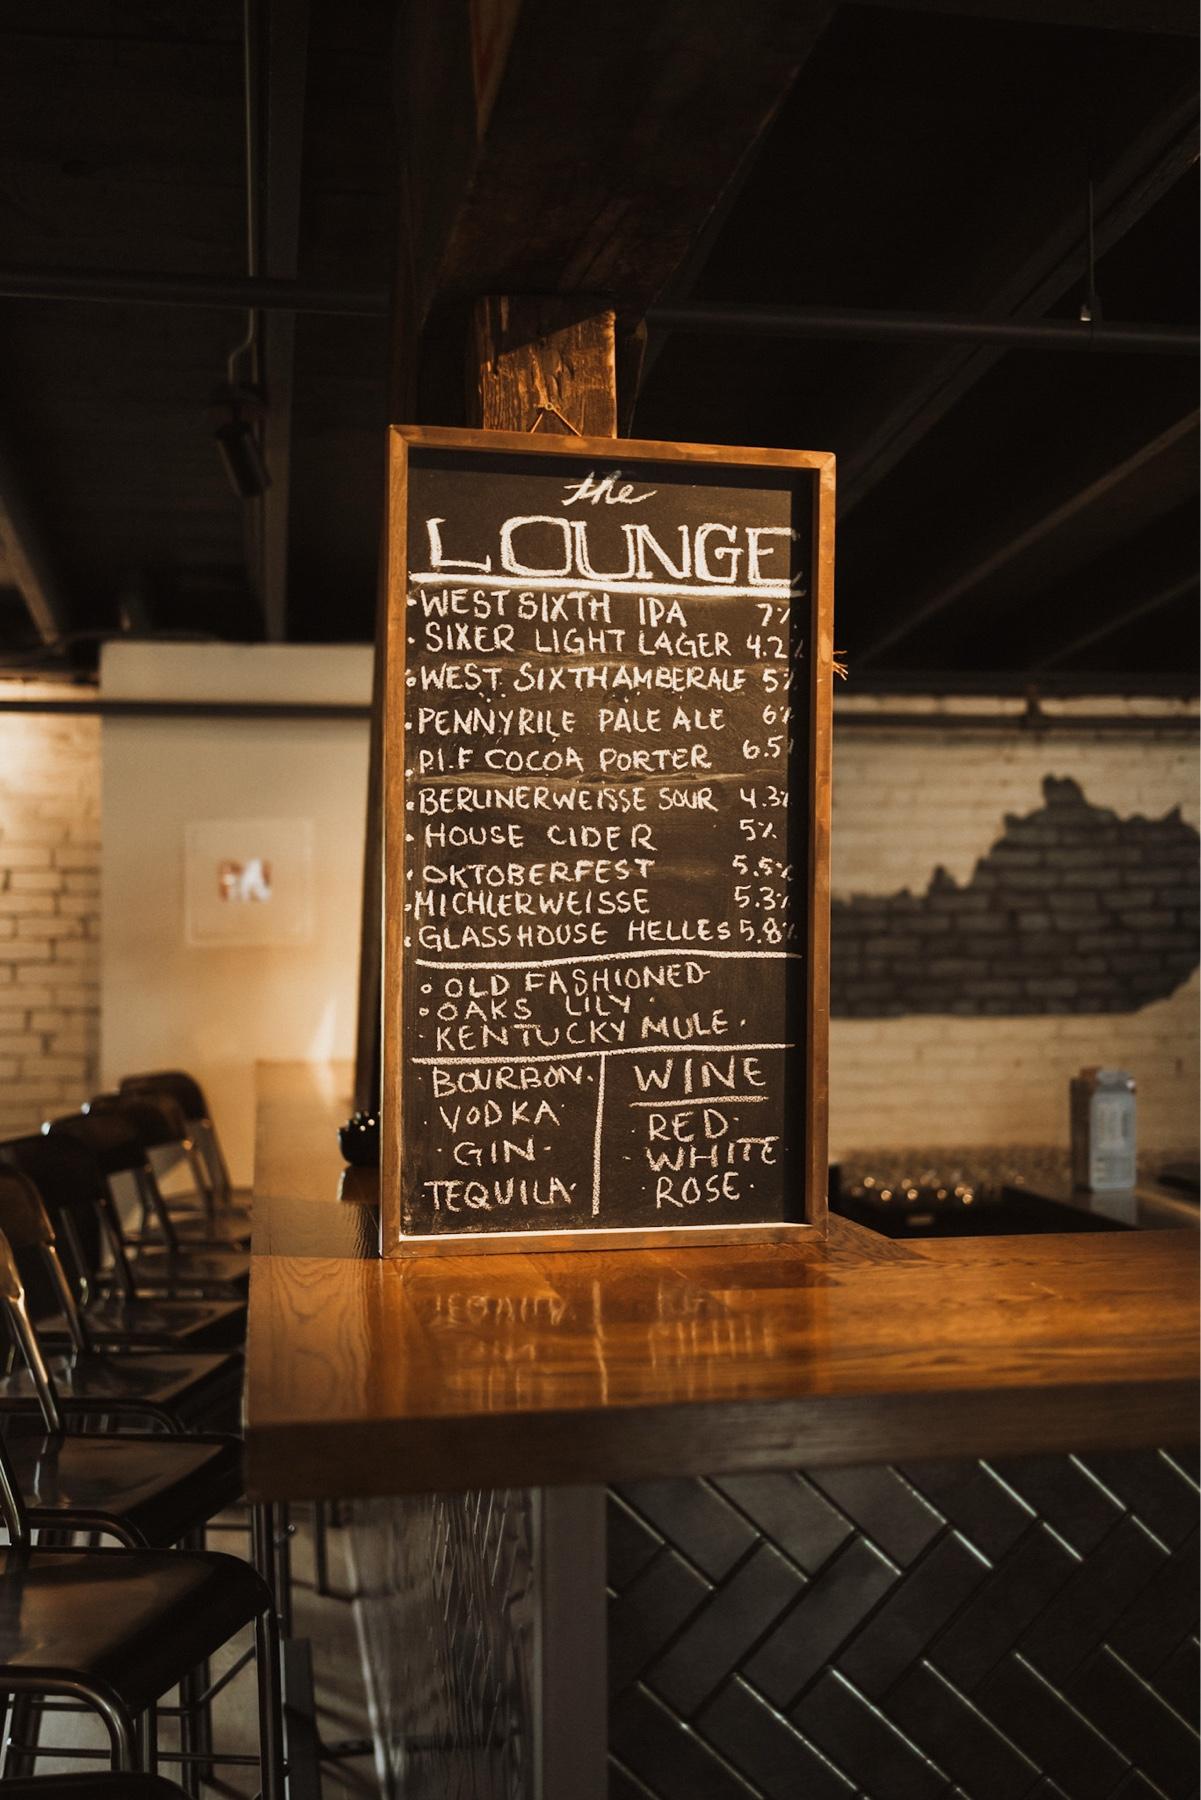 the
LOUNGE
• WEST SIXTH IPA 7%
• SIXER LIGHT LAGER 4.2%
• WEST SIXTH AMBER ALE 5%
• PENNYRILE PALE ALE 6%
• P.I.F COCOA PORTER 6.5%
• BERLINERWEISSE SOUR 4.3%
• HOUSE CIDER 5%
• OKTOBERFEST 5.5%
• MICHLERWEISSE 5.3%
• GLASSHOUSE HELLES 5.8%
• OLD FASHIONED
• OAKS LILY •
• KENTUCKY MULE •
• BOURBON •
• VODKA •
• GIN •
• TEQUILA •
WINE
• RED •
• WHITE •
• ROSE •